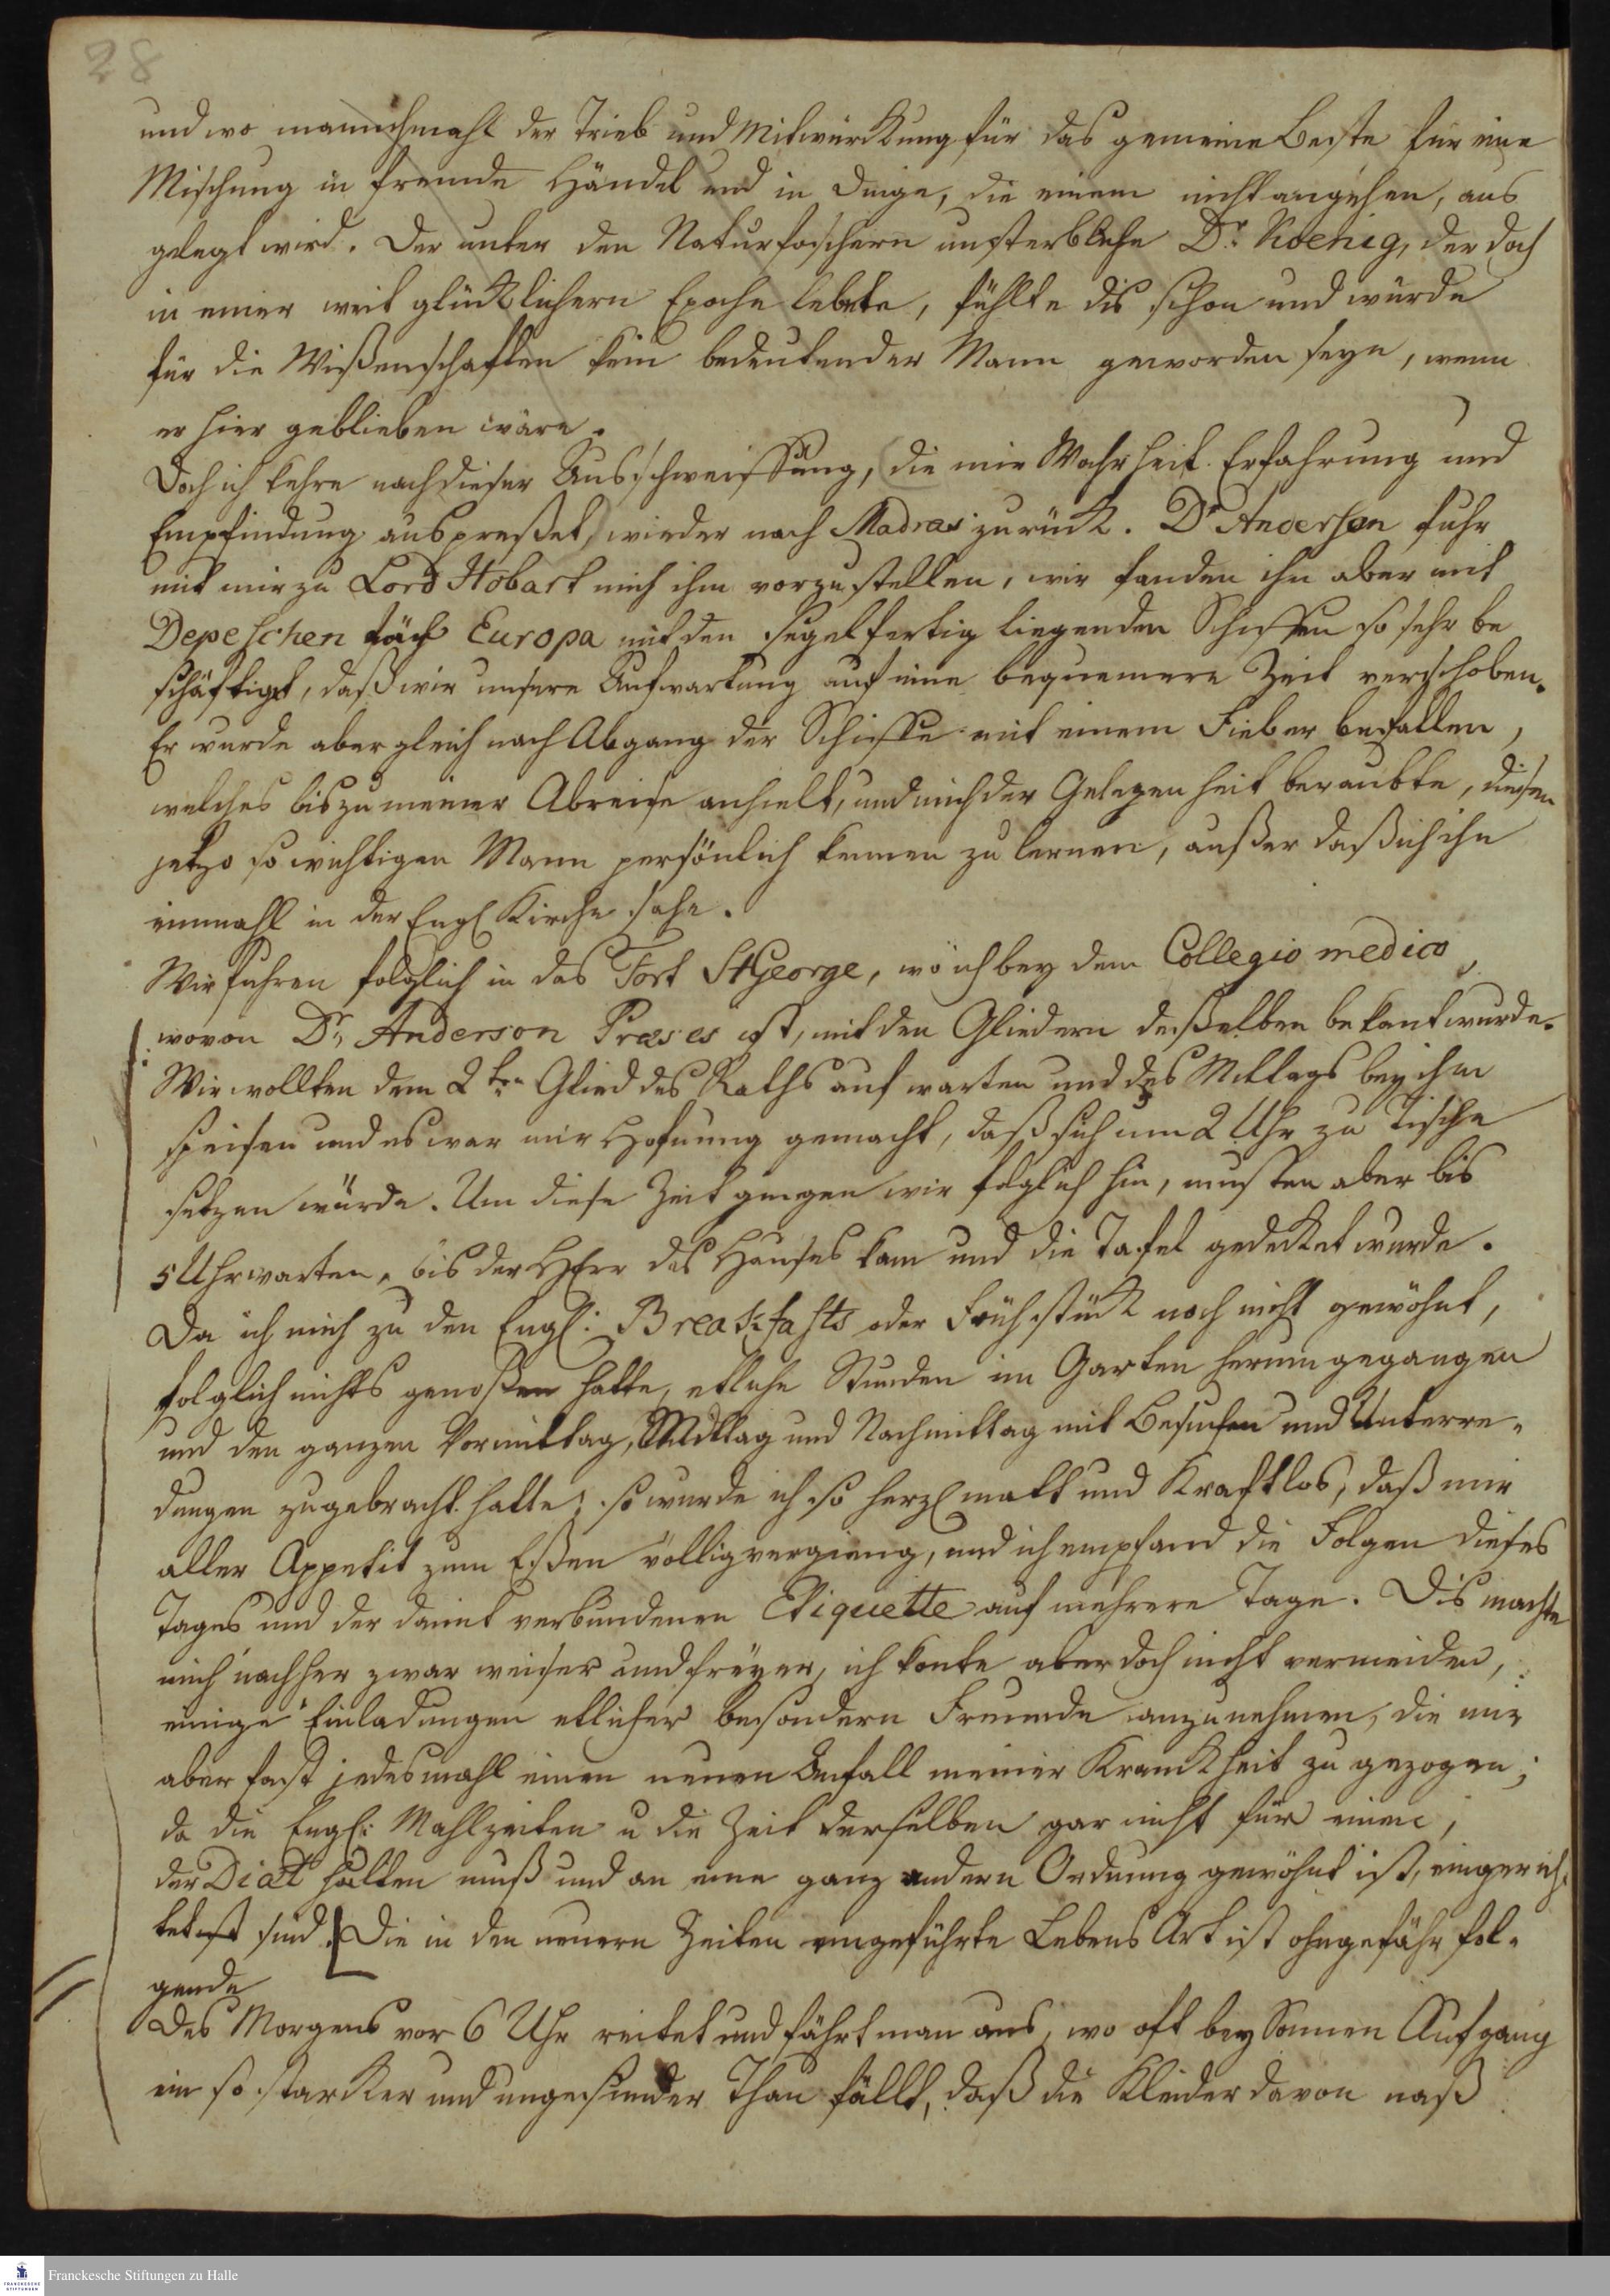 28
und wo mannchmahl der Trieb und Mitwürckung für das gemeine Beste für eine
Mischung in fremde Händel und in Dinge, die einem nicht angehen, aus
gelegt wird. Der unter den Naturforschern unsterbliche Dr. Koenig, der doch
in einer weit glücklichern Epoche lebete, fühlte dis schon und würde
für die Wißenschaften kein bedeutender Mann geworden seyn, wenn
er hier geblieben wäre.
Doch ich kehre nach dieser Ausschweiffung, (die mir Wahrheit. Erfahrung und
Empfindung auspreßet) wieder nach Madras zurück. Dr Anderson fuhr
mit mir zu Lord Hobart mich ihm vorzustellen, wir fanden ihn aber mit
Depeschen nach Europa mit den segelfertig liegenden Schiffen so sehr be
schäftigt, daß wir unsere Aufwartung auf eine bequemere Zeit verschoben.
Er wurde aber gleich nach Abgang der Schiffe mit einem Fieber befallen,
welches bis zu meiner Abreise anhielt, und mich der Gelegenheit beraubte, diesen
jetzo so wichtigen Mann persönlich kennen zu lernen, außer daß ich ihn
einmahl in der Engl Kirche sahe.
Wir fuhren folglich in das Fort St George, wo ich bey dem Collegio medico,
wovon Dr. Anderson Præses ist, mit den Gliedern deßelben bekant wurde.
Wir wollten dem 2ten Glied des Raths aufwarten und des Mittags bey ihm
speisen und es war mir Hofnung gemacht, daß sich um 2 Uhr zu Tische
setzen würde. Um diese Zeit gingen wir folglich hin, musten aber bis
5 Uhr warten, bis der HErr des Hauses kam und die Tafel gedecket wurde.
Da ich mich zu den Engl: Breakfasts oder Frühstück noch nicht gewöhnt,
folglich nichts genoßen hatte, etliche Stunden im Garten herumgegangen
und den ganzen Vormittag, Mittag und Nachmittag mit Besuchen und Unterre-
dungen zugebracht hatte; so wurde ich so herzl matt und Kraftlos, daß mir
aller Appetit zum Eßen völlig vergieng, und ich empfand die Folgen dieses
Tages und der damit verbundenen Etiquette auf mehrere Tage. Dis machte
mich nachher zwar weiser und freyer, ich konte aber doch nicht vermeiden,
einige Einladungen etlicher besondern Freunde anzunehmen, die mir
aber fast jedesmahl einen neuen Anfall meiner Kranckheit zu gezogen;
da die Engl: Mahlzeiten u die Zeit derselben gar nicht für einen,
der Diät halten muß und an eine ganz andern Ordnung gewöhnt ist, eingerich-
tet ist sind. Die in den neuern Zeiten eingeführte Lebens Art ist ohngefähr fol-
gende
Des Morgens vor 6 Uhr reitet und fährt man aus, wo oft bey Sonnen Aufgang
ein so starcker und ungesunder Thau fällt, daß die Kleider davon naß
FRANCKESCHE STIFTUNGEN
Franckesche Stiftungen zu Halle